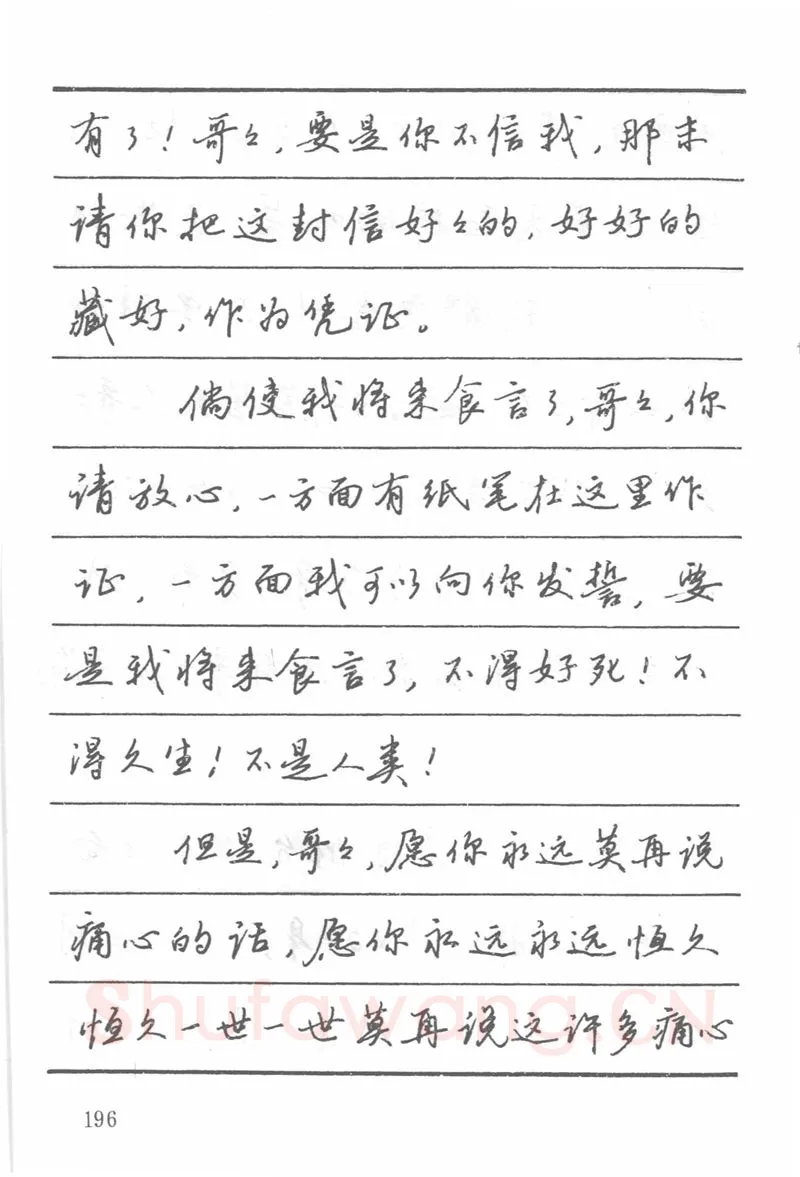 有了！哥々，要是你不信我，那末
请你把这封信好々的，好好的
藏好，作为凭证。
倘使我将来食言了，哥々，你
请放心，一方面有纸笔在这里作
证，一方面我可以向你发誓，要
是我将来食言了，不得好死！不
得久生！不是人类！
但是，哥々，愿你永远莫再说
痛心的话，愿你永远永远恒久
恒久一世一世莫再说这许多痛心
Shufawang.CN
196